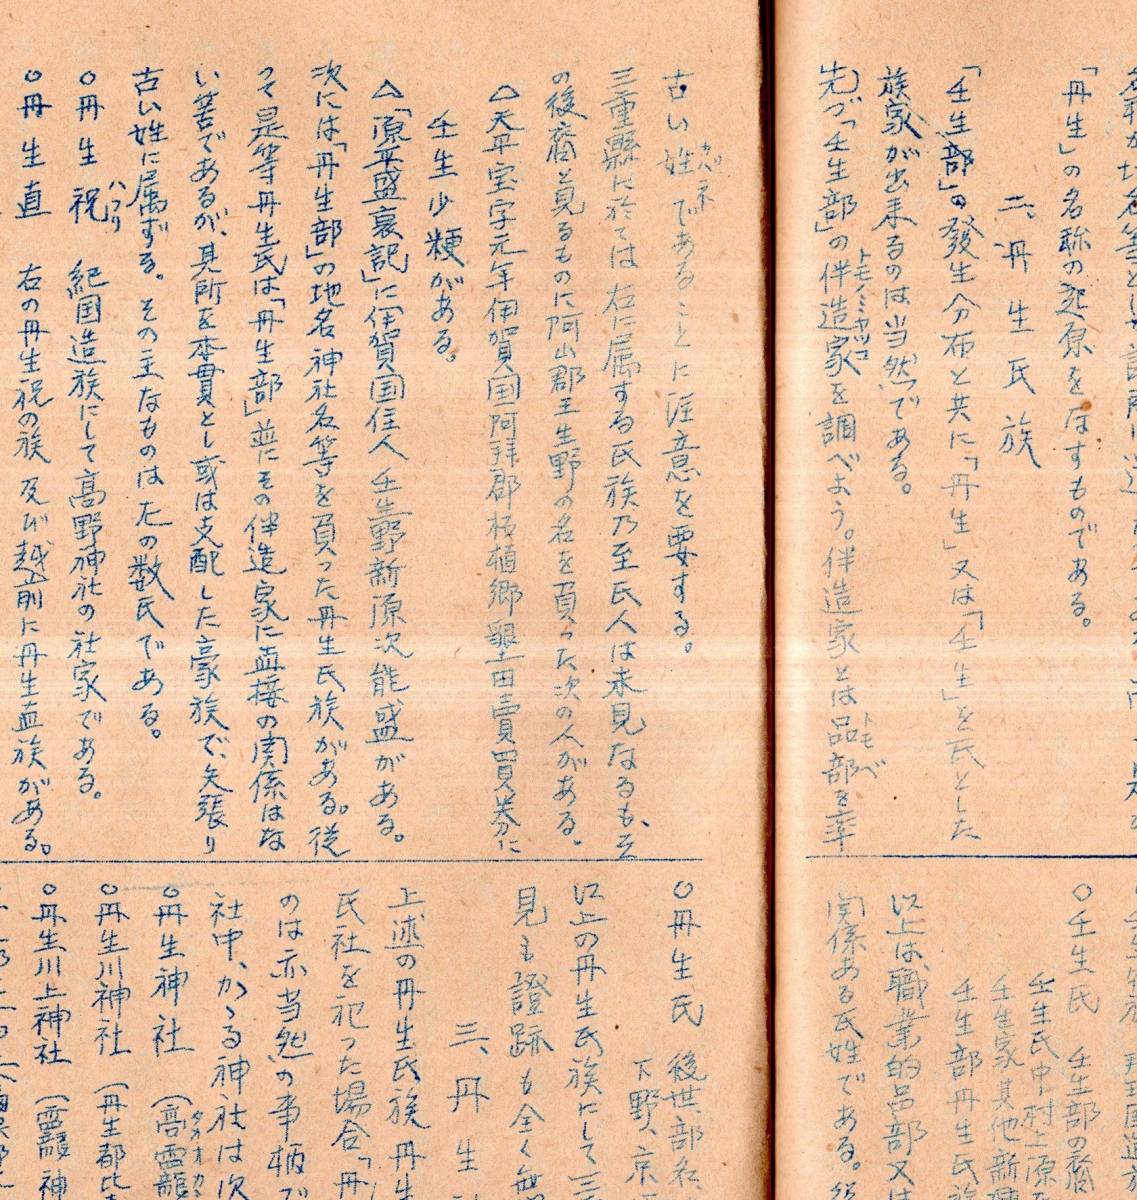 「丹生」の名称の起原をなすものである。
二、丹生氏族
「壬生部」の發生分布と共に「丹生」又は「壬生」を氏とした
族家が出来るのは当然である。
先づ「壬生部」の伴造家を調べよう。伴造家とは品部を率
トモノミヤツコ
トモベ
○壬生氏 壬生部の裔
壬生氏中村上源
壬生家其他新
壬生部丹生氏
以上は職業的品部又は
関係ある氏姓である。
古い姓であることに注意を要する。
カバネ
三重縣に於ては右に属する氏族乃至氏人は未見なるも、そ
の後裔と見るものに阿山郡壬生野の名を負った次の人がある。
△天平宝字元年伊賀国阿拜郡柘植郷墾田賣買券に
壬生少粳がある。
△「源平盛衰記」に「伊賀国住人壬生野新源次能盛がある。
次には「丹生部」の地名神社名等を負った丹生氏族がある。従
って是等丹生氏は「丹生部」並にその伴造家に直接の関係はな
い筈であるが、見所を本貫とし或は支配した豪族で、矢張り
古い姓に属ずる。その主なものは左の数氏である。
○丹生祝 紀国造族にして高野神社の社家である。
ハフリ
○丹生直 右の丹生祝の族及び越前に丹生直族がある。
○丹生氏 後世部名
下野、京
以上の丹生氏族にして三
見も證跡も全く無
三、丹生
上述の丹生氏族丹生
氏社を祀った場合「丹
のは亦当然の事柄で
社中、かゝる神社は次
○丹生神社 (高龗
タカオカ
○丹生川神社 (丹生都比
○丹生川上神社 (龗神